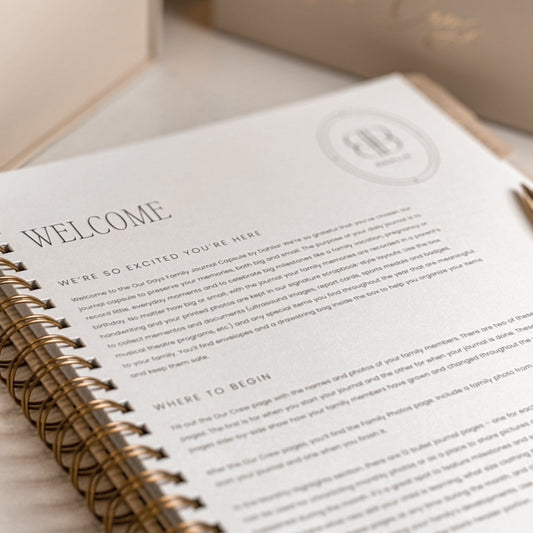 WELCOME
WE'RE SO EXCITED YOU'RE HERE
Welcome to the Our Days Family Journal Capsule by Danior. We're so grateful that you've chosen our
journal capsule to preserve your memories, both big and small. The purpose of your daily journal is to
record little, everyday moments and to celebrate big milestones like a family vacation, pregnancy or
birthday. No matter how big or small, with the journal your family memories are recorded in a parent's
handwriting and your printed photos are kept in our signature scrapbook-style layouts. Use the box
to collect mementos and documents (ultrasound images, report cards, sports medals and badges,
musical theatre programs, etc.) and any special items you find throughout the year that are meaningful
to your family. You'll find envelopes and a drawstring bag inside the box to help you organize your items
and keep them safe.
WHERE TO BEGIN
Fill out the Our Crew page with the names and photos of your family members. There are two of these
pages. The first is for when you start your journal and the other for when your journal is done. These
pages side-by-side show how your family members have grown and changed throughout the
After the Our Crew pages, you'll find the Family Photos page. Include a family photo from
start your journal and one when you finish it.
In the monthly highlights section, there are 12 bullet journal pages – one for each